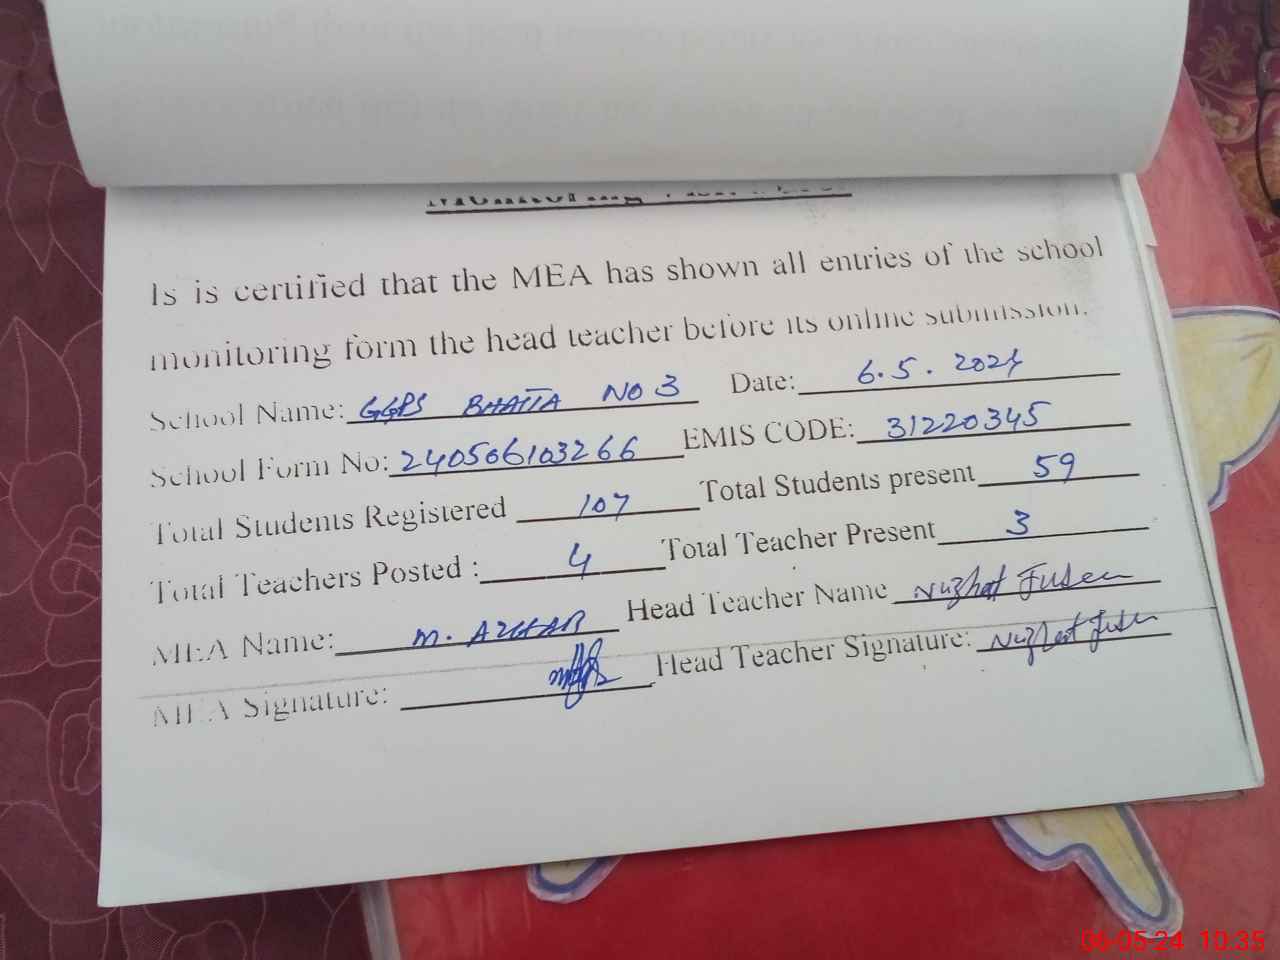 Is is certified that the MEA has shown all entries of the school
monitoring form the head teacher before its online submission.
School Name: GGPS BHATTA NO 3 Date: 6.5.2024
School Form No: 240506103266 EMIS CODE: 31220345
Total Students Registered 107 Total Students present 59
Total Teachers Posted : 4 Total Teacher Present 3
MEA Name: M. AZHAR Head Teacher Name Nuzhat
MEA Signature: Head Teacher Signature: Nuzhat
06-05-24 10:35